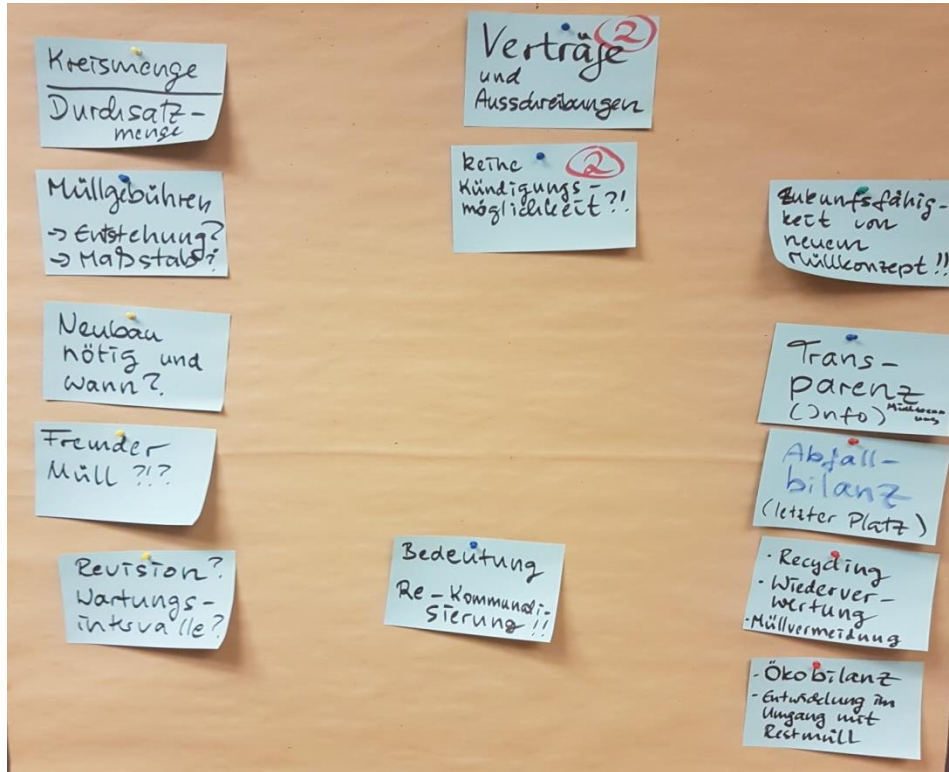 Kreismenge
Durchsatz-
menge
Müllgebühren
→ Entstehung?
→ Maßstab?
Neubau
nötig und
wann?
Fremder
Müll ?!?
Revision?
Wartungs-
intervalle?
Verträge 2
und
Ausschreibungen
keine 2
Kündigungs-
möglichkeit?!
Bedeutung
Re-Kommunali-
sierung!!
Zukunfsfähig-
keit von
neuem
Müllkonzept!!
Trans-
parenz
(Info)
Abfall-
bilanz
(letzter Platz)
· Recycling
· Wiederver-
wertung
· Müllvermeidung
- Ökobilanz
- Entwicklung im
Umgang mit
Restmüll